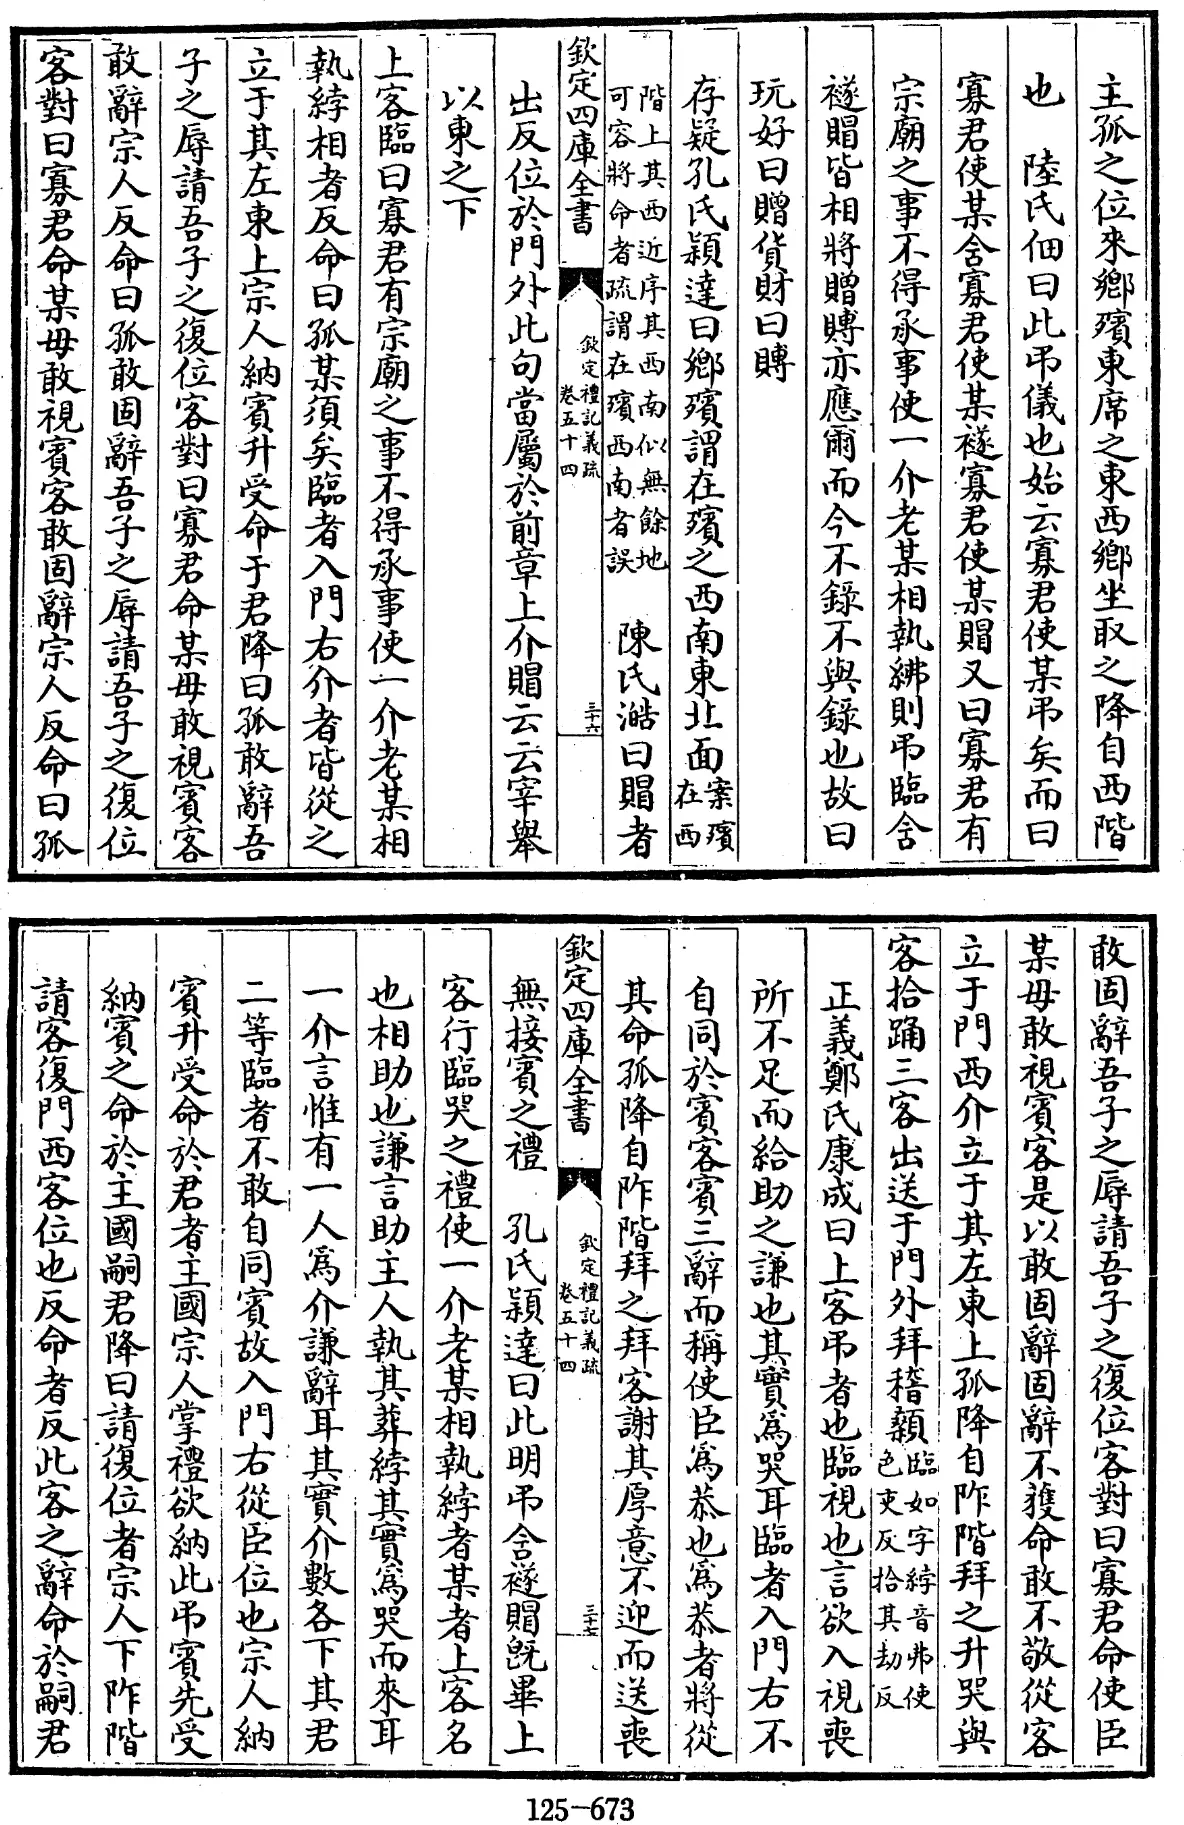 主孤之位來鄉殯東席之東西鄉坐取之降自西階
也　陸氏佃曰此弔儀也始云寡君使某弔矣而曰
寡君使某含寡君使某襚寡君使某賵又曰寡君有
宗廟之事不得承事使一介老某相執紼則弔臨含
襚賵皆相將贈賻亦應爾而今不錄不與錄也故曰
玩好曰贈貨財曰賻
存疑孔氏穎達曰鄉殯謂在殯之西南東北面案殯
在西
階上其西近序其西南似無餘地
可容將命者疏謂在殯西南者誤　陳氏澔曰賵者
欽定四庫全書
欽定禮記義疏
卷五十四
三十六
出反位於門外此句當屬於前章上介賵云云宰舉
以東之下
上客臨曰寡君有宗廟之事不得承事使一介老某相
執綍相者反命曰孤某須矣臨者入門右介者皆從之
立于其左東上宗人納賓升受命于君降曰孤敢辭吾
子之辱請吾子之復位客對曰寡君命某毋敢視賓客
敢辭宗人反命曰孤敢固辭吾子之辱請吾子之復位
客對曰寡君命某毋敢視賓客敢固辭宗人反命曰孤
敢固辭吾子之辱請吾子之復位客對曰寡君命使臣
某毋敢視賓客是以敢固辭固辭不獲命敢不敬從客
立于門西介立于其左東上孤降自阼階拜之升哭與
客拾踊三客出送于門外拜稽顙
臨如字綍音弗使
色吏反拾其劫反
正義鄭氏康成曰上客弔者也臨視也言欲入視喪
所不足而給助之謙也其實爲哭耳臨者入門右不
自同於賓客賓三辭而稱使臣爲恭也爲恭者將從
其命孤降自阼階拜之拜客謝其厚意不迎而送喪
欽定四庫全書
欽定禮記義疏
卷五十四
三十七
無接賓之禮　孔氏穎達曰此明弔含襚賵旣畢上
客行臨哭之禮使一介老某相執綍者某者上客名
也相助也謙言助主人執其葬綍其實爲哭而來耳
一介言惟有一人爲介謙辭耳其實介數各下其君
二等臨者不敢自同賓故入門右從臣位也宗人納
賓升受命於君者主國宗人掌禮欲納此弔賓先受
納賓之命於主國嗣君降曰請復位者宗人下阼階
請客復門西客位也反命者反此客之辭命於嗣君
125—673